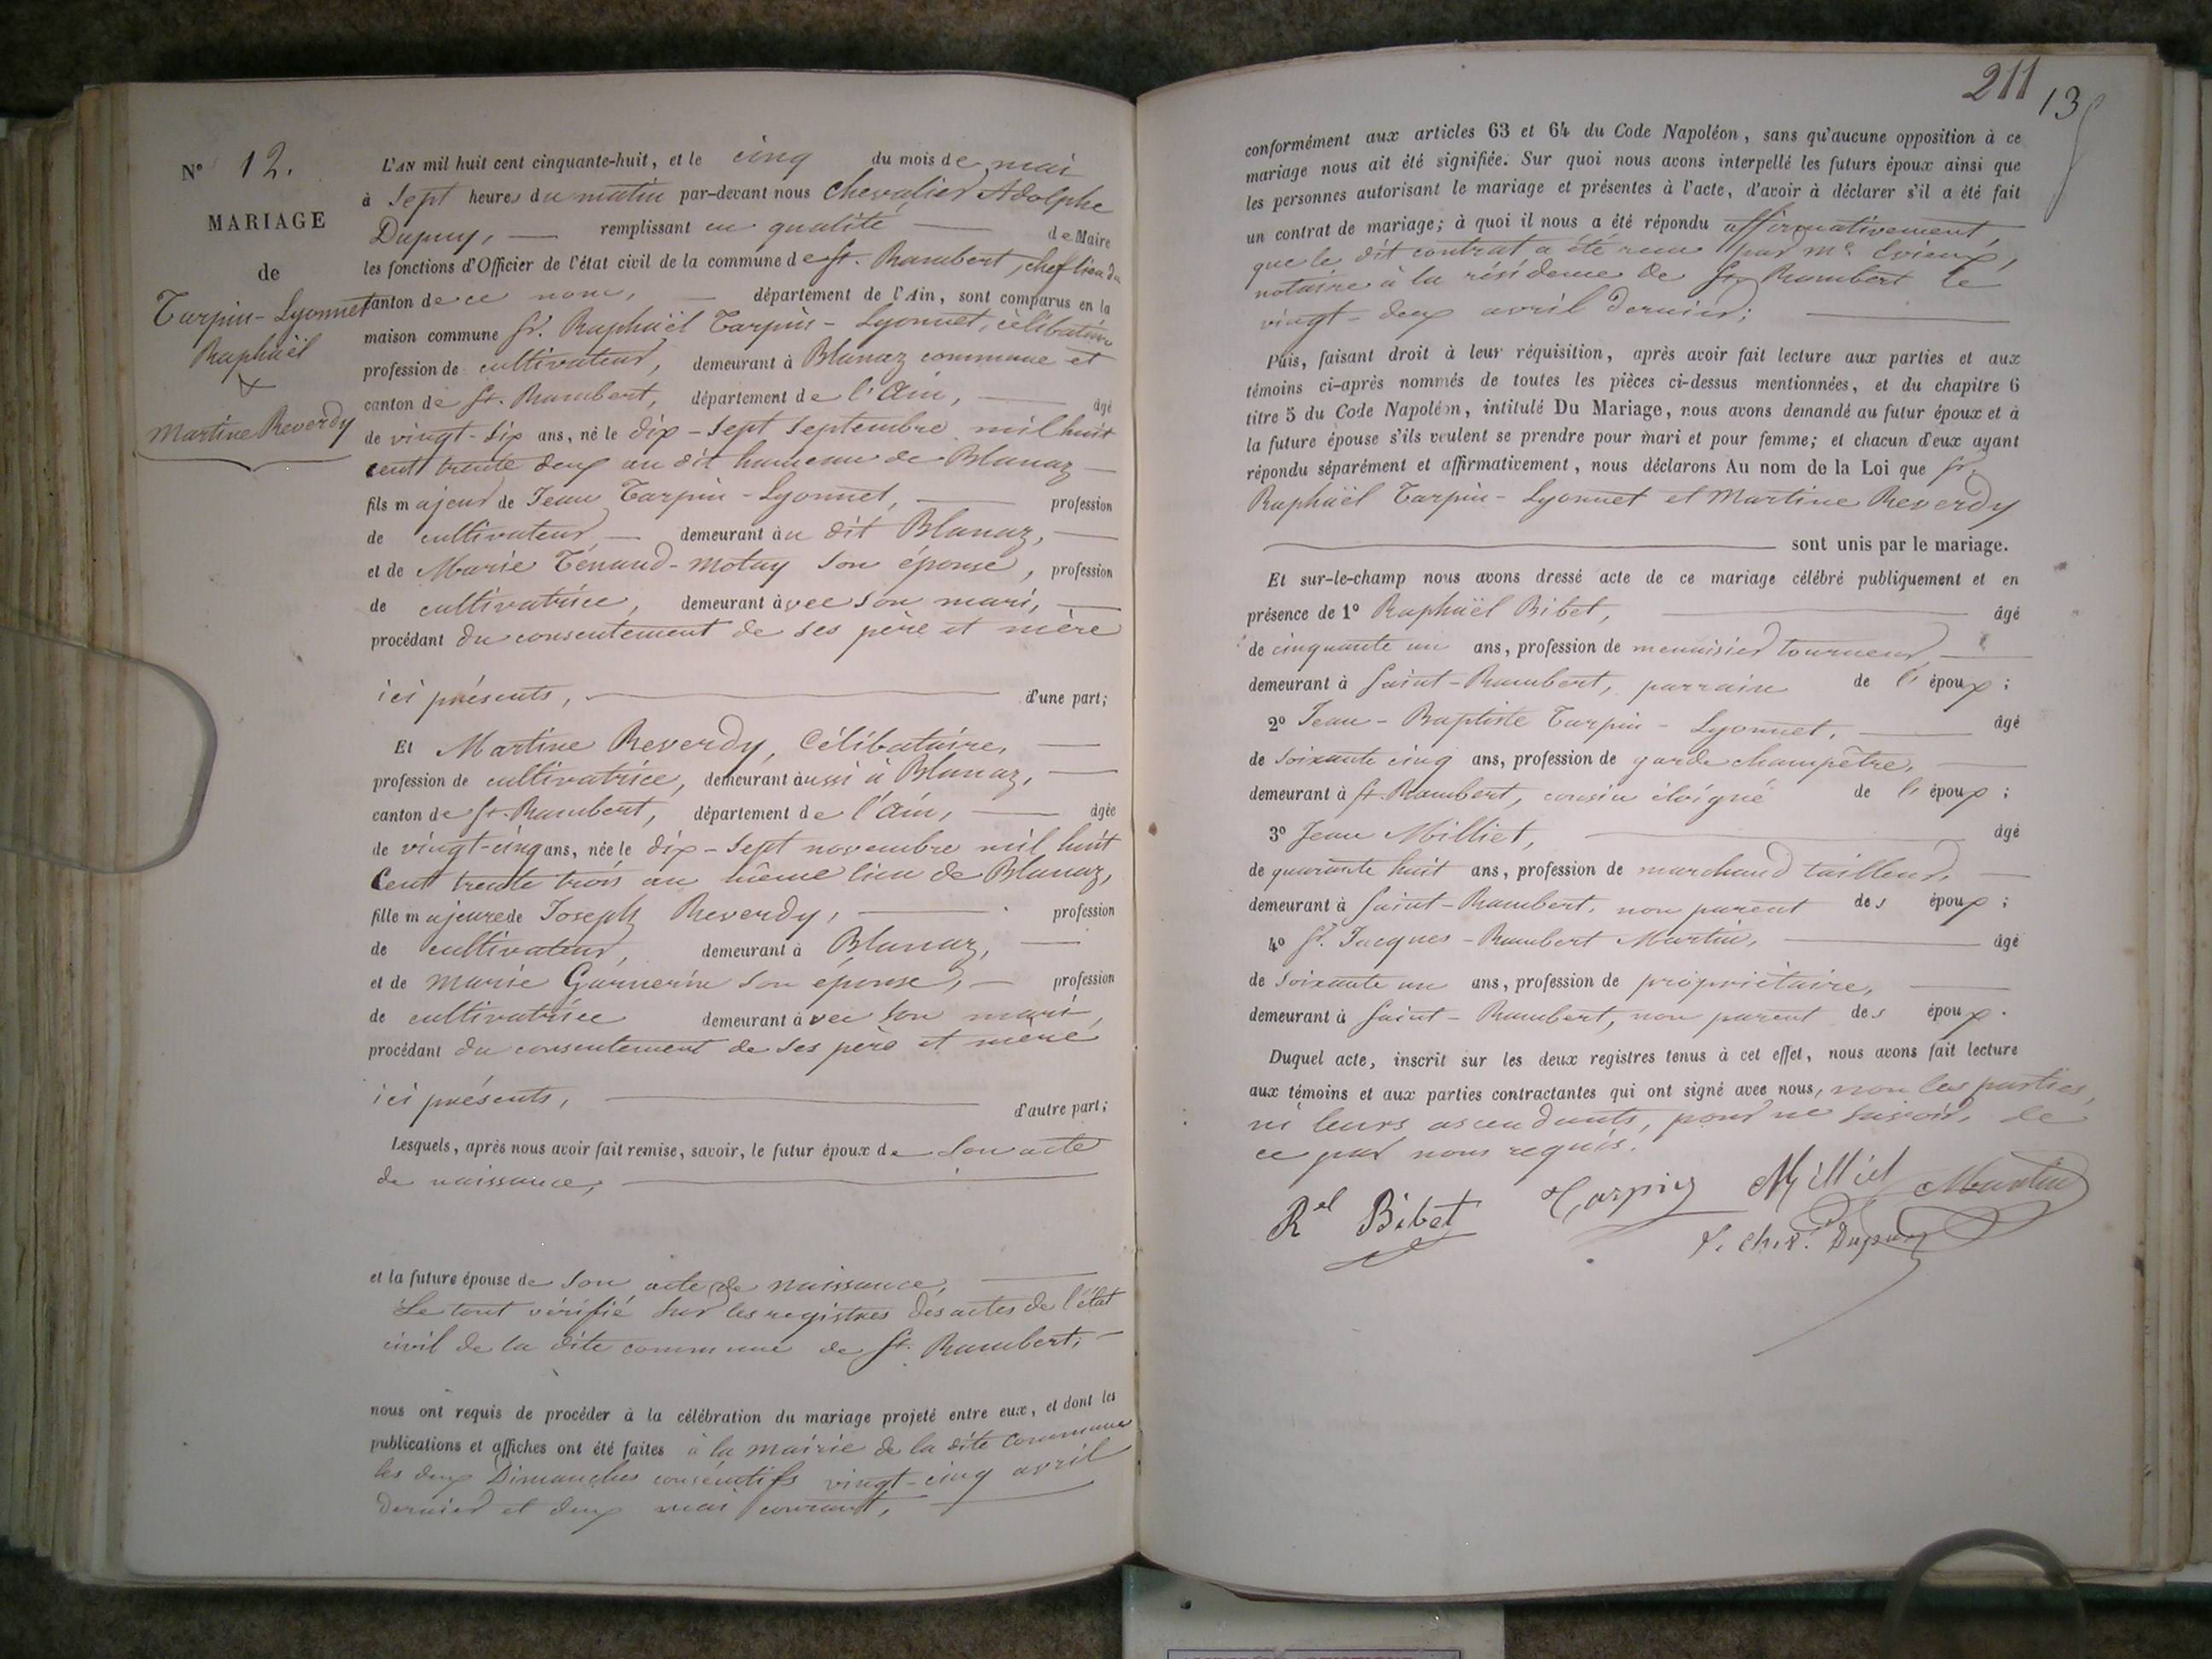 N° 12.
MARIAGE
de
Tarpin-Lyonnet
Raphaël
&
Martine Reverdy
L'AN mil huit cent cinquante-huit, et le cinq du mois de mai
à sept heures du matin par-devant nous Chevalier Adolphe
Dupuy, remplissant en qualité de Maire
les fonctions d'Officier de l'état civil de la commune de St. Rambert, chef lieu du
canton de ce nom, département de l'Ain, sont comparus en la
maison commune Sr. Raphaël Tarpin-Lyonnet, célibataire
profession de cultivateur, demeurant à Blanaz commune et
canton de St. Rambert, département de l'Ain, âgé
de vingt-six ans, né le dix-sept septembre mil huit
cent trente deux au dit hameau de Blanaz
fils majeur de Jean Tarpin-Lyonnet, profession
de cultivateur demeurant au dit Blanaz,
et de Marie Ténand-Motay son épouse, profession
de cultivatrice, demeurant avec son mari,
procédant du consentement de ses père et mère
ici présents, d'une part;
Et Martine Reverdy, Célibataire,
profession de cultivatrice, demeurant aussi à Blanaz,
canton de St. Rambert, département de l'Ain, âgée
de vingt-cinq ans, née le dix-sept novembre mil huit
Cent trente trois au même lieu de Blanaz,
fille majeure de Joseph Reverdy, profession
de cultivateur, demeurant à Blanaz,
et de Marie Garnerin son épouse, profession
de cultivatrice demeurant avec son mari,
procédant du consentement de ses père et mère
ici présents, d'autre part;
Lesquels, après nous avoir fait remise, savoir, le futur époux de son acte
de naissance,
et la future épouse de son acte de naissance,
Le tout vérifié sur les registres des actes de l'état
civil de la dite commune de St. Rambert;
nous ont requis de procéder à la célébration du mariage projeté entre eux, et dont les
publications et affiches ont été faites à la mairie de la dite Commune
les deux Dimanches consécutifs vingt-cinq avril
dernier et deux mai courant,
211
13
conformément aux articles 63 et 64 du Code Napoléon, sans qu'aucune opposition à ce
mariage nous ait été signifiée. Sur quoi nous avons interpellé les futurs époux ainsi que
les personnes autorisant le mariage et présentes à l'acte, d'avoir à déclarer s'il a été fait
un contrat de mariage; à quoi il nous a été répondu affirmativement,
que le dit contrat a été reçu par Me Evieux,
notaire à la résidence de St. Rambert le
vingt-deux avril dernier;
Puis, faisant droit à leur réquisition, après avoir fait lecture aux parties et aux
témoins ci-après nommés de toutes les pièces ci-dessus mentionnées, et du chapitre 6
titre 5 du Code Napoléon, intitulé Du Mariage, nous avons demandé au futur époux et à
la future épouse s'ils veulent se prendre pour mari et pour femme; et chacun d'eux ayant
répondu séparément et affirmativement, nous déclarons Au nom de la Loi que Sr.
Raphaël Tarpin-Lyonnet et Martine Reverdy
sont unis par le mariage.
Et sur-le-champ nous avons dressé acte de ce mariage célébré publiquement et en
présence de 1° Raphaël Bibet, âgé
de cinquante un ans, profession de menuisier tourneur,
demeurant à Saint-Rambert, parrain de l'époux;
2° Jean-Baptiste Tarpin-Lyonnet, âgé
de soixante cinq ans, profession de garde champêtre,
demeurant à St. Rambert, cousin éloigné de l'époux;
3° Jean Milliet, âgé
de quarante huit ans, profession de marchand tailleur,
demeurant à Saint-Rambert, non parent des époux;
4° Sr. Jacques-Rambert Martin, âgé
de soixante un ans, profession de propriétaire,
demeurant à Saint-Rambert, non parent des époux.
Duquel acte, inscrit sur les deux registres tenus à cet effet, nous avons fait lecture
aux témoins et aux parties contractantes qui ont signé avec nous, non les parties,
ni leurs ascendants, pour ne savoir, de
ce par nous requis.
Rel Bibet Tarpin Milliet Martin
Dupuy